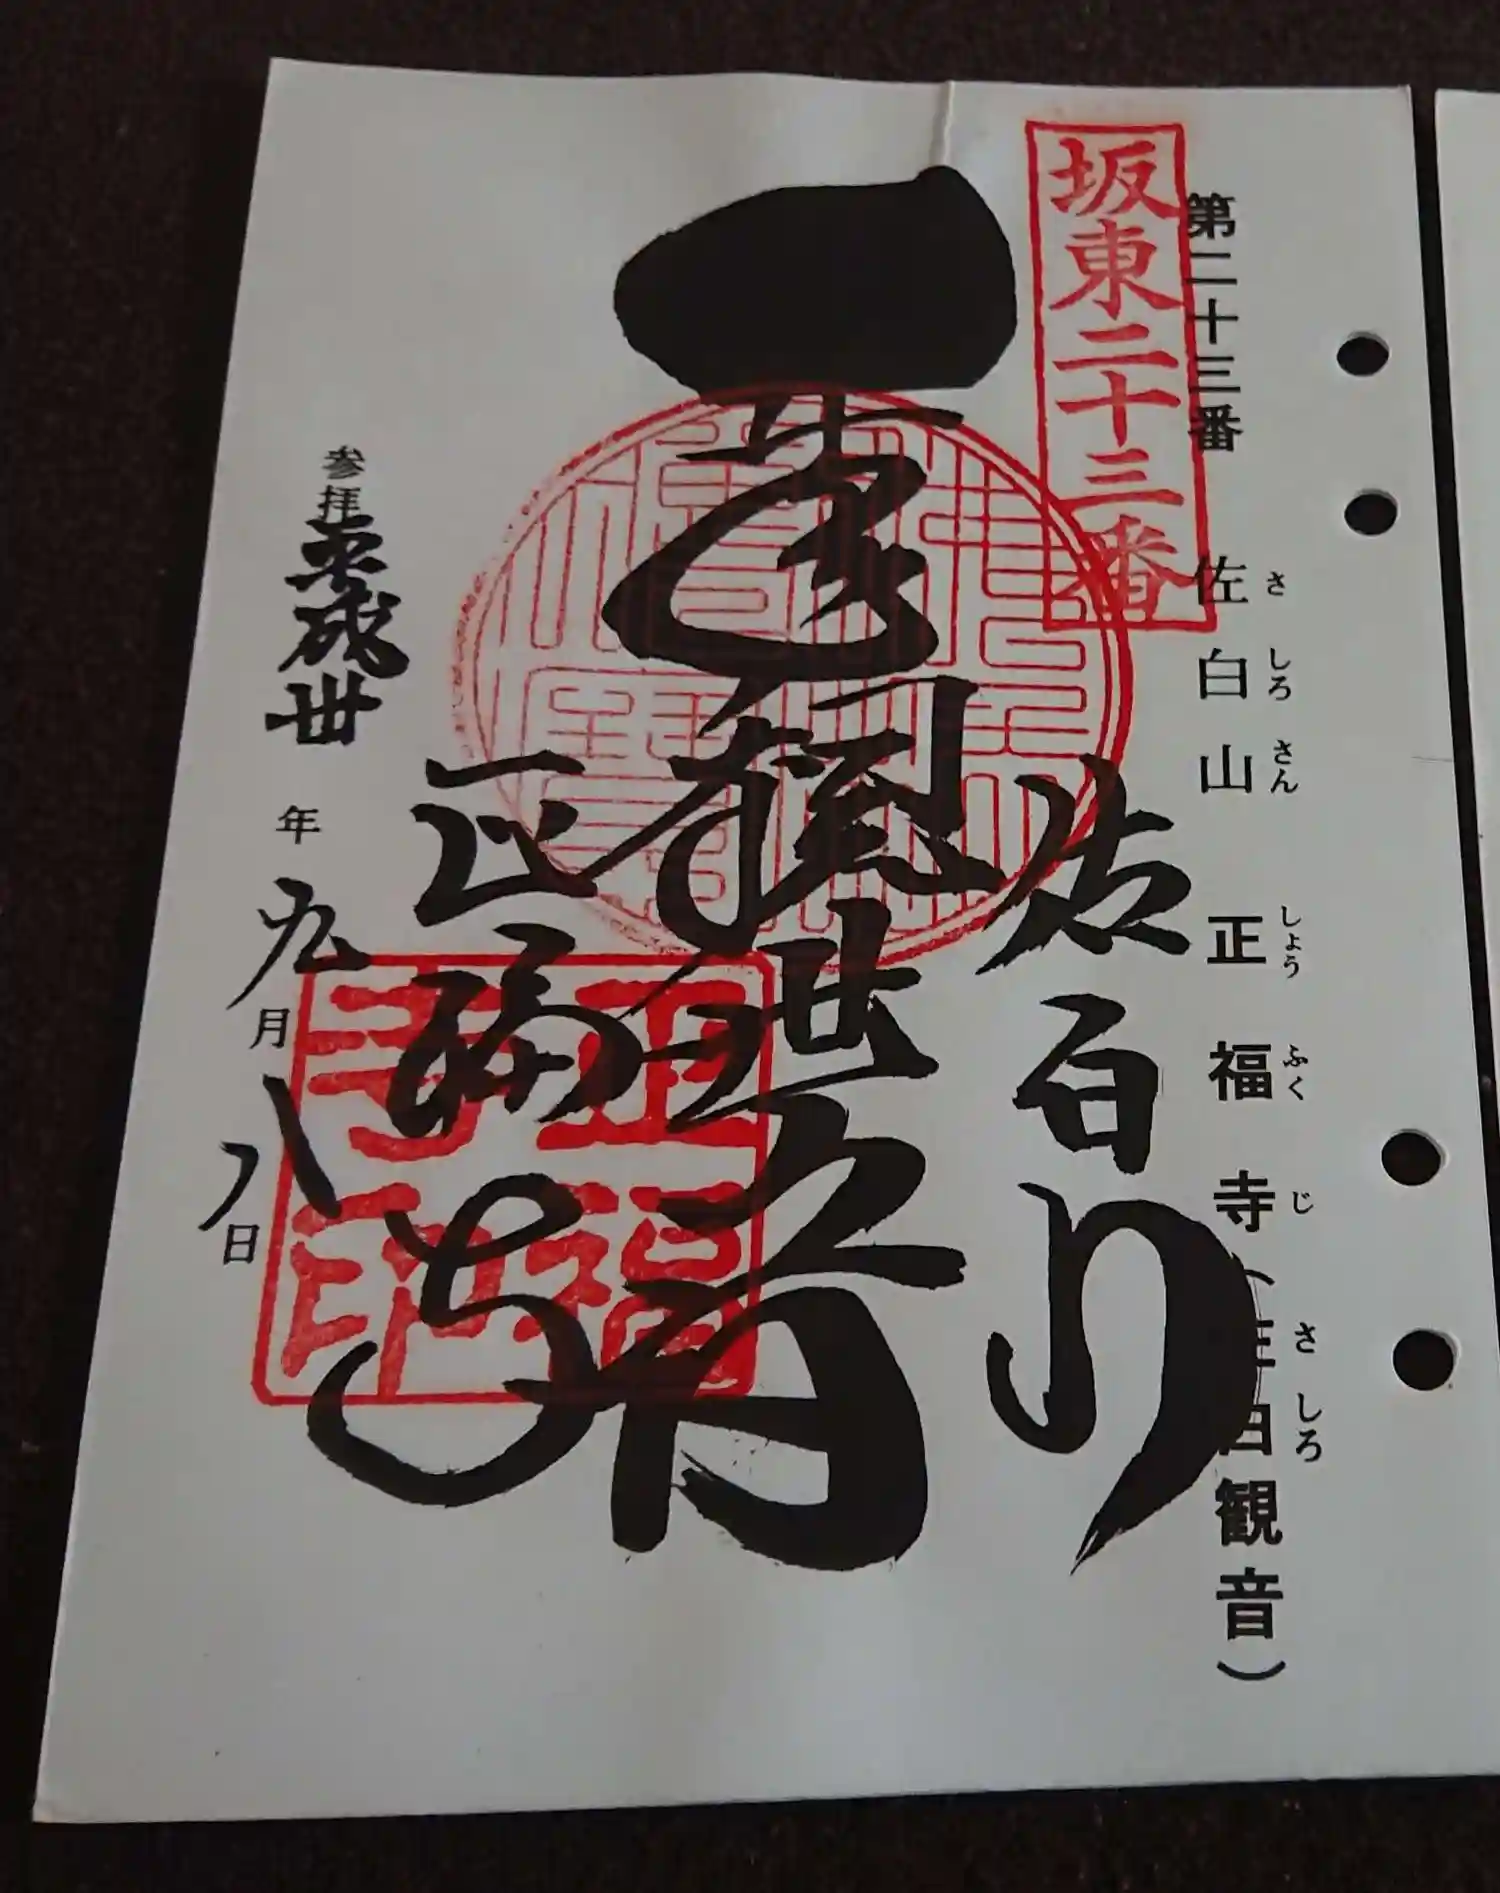 第二十三番 佐白山 正福寺(佐白観音)
さしろさん しょうふくじ さしろ
坂東二十三番
佐白山
千手観世音
正福寺
正福寺印
参拝平成卅年九月八日